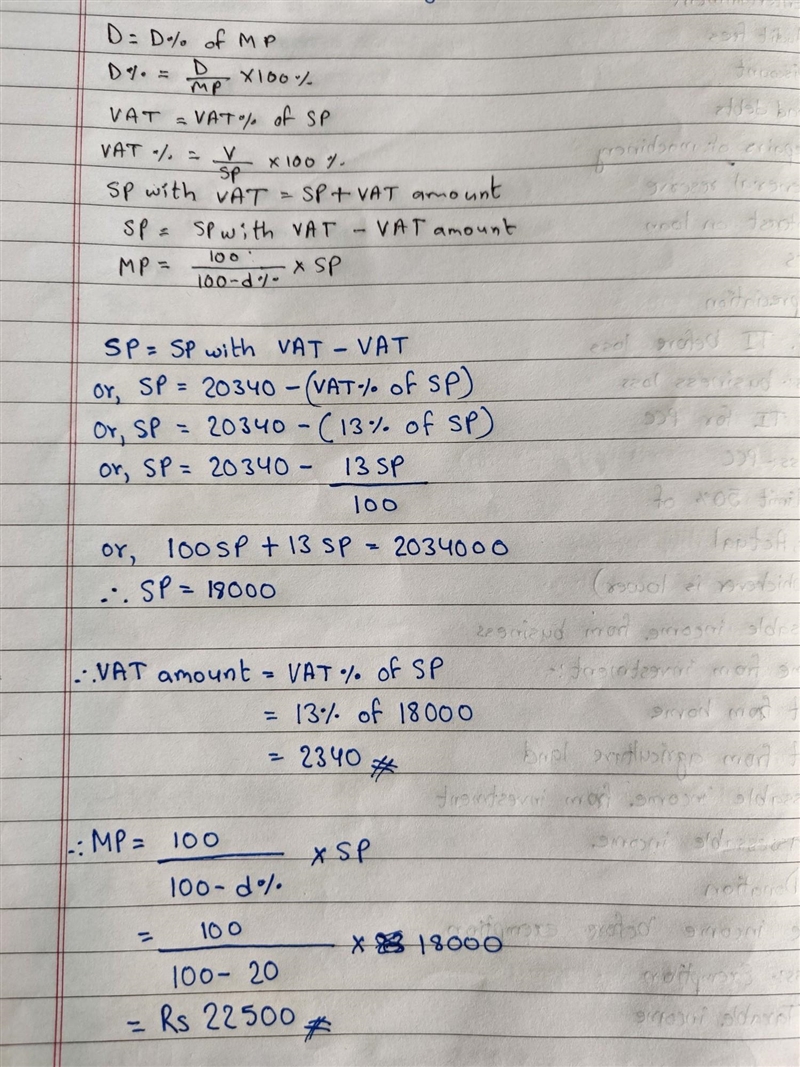 D = D% of MP
D% = D/MP × 100%
VAT = VAT% of SP
VAT % = V/SP × 100 %
SP with VAT = SP + VAT amount
SP = SP with VAT - VAT amount
MP = 100/100-d% × SP
SP = SP with VAT - VAT
or, SP = 20340 - (VAT% of SP)
or, SP = 20340 - (13% of SP)
or, SP = 20340 - 13 SP/100
or, 100 SP + 13 SP = 2034000
∴ SP = 18000
∴ VAT amount = VAT % of SP
= 13% of 18000
= 2340 #
∴ MP = 100/100-d% × SP
= 100/100-20 × 18000
= Rs 22500 #